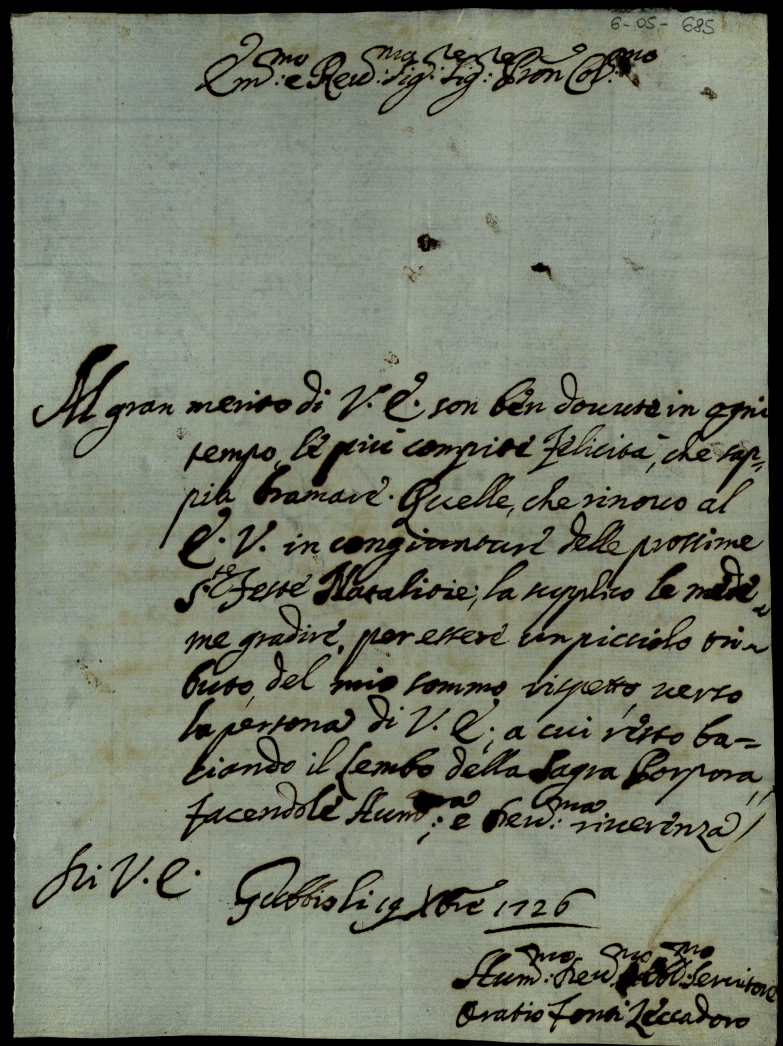 6-05-685
Em:mo e Reu:mo Sig:re Sig:re Pron Col:mo
Al gran merito di V. E. son ben douute in ogni
tempo, le più compite felicità, che sap=
pia bramare. Quelle, che rinouo al
E. V. in congiunture delle prossime
S.te Feste Natalitie, la supplico le mede=
me gradire, per essere un picciolo tri=
buto, del mio sommo rispetto, uerso
la persona di V. E., a cui resto ba=
ciando il Lembo della Sagra Porpora,
facendole Hum:ma e Reu:ma riuerenza
Di V. E.
Gubbio li 19 Xbre 1726
Hum:mo Deu:mo Obl:mo Seruitore
Oratio Leccadoro